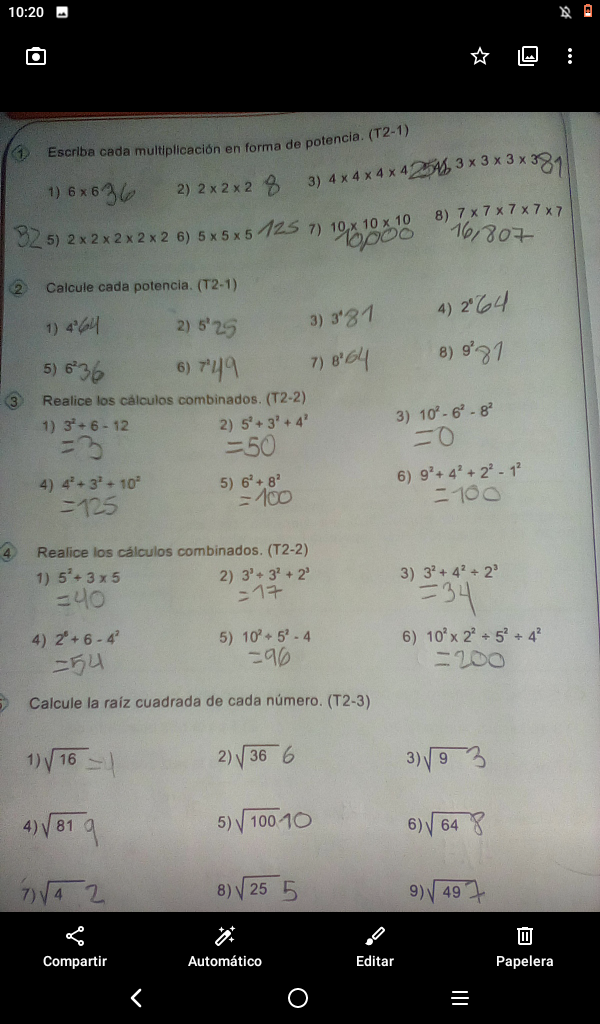 10:20
1 Escriba cada multiplicación en forma de potencia. (T2-1)
1) 6 x 6 36 2) 2 x 2 x 2 8 3) 4 x 4 x 4 x 4 256 4) 3 x 3 x 3 x 3 81
32 5) 2 x 2 x 2 x 2 x 2 6) 5 x 5 x 5 125 7) 10 x 10 x 10 10,000 8) 7 x 7 x 7 x 7 x 7 16,807
2 Calcule cada potencia. (T2-1)
1) 4³ 64 2) 5² 25 3) 3⁴ 81 4) 2⁶ 64
5) 6² 36 6) 7² 49 7) 8² 64 8) 9² 81
3 Realice los cálculos combinados. (T2-2)
1) 3² + 6 - 12 2) 5² + 3² + 4² 3) 10² - 6² - 8²
=3 =50 =0
4) 4² + 3² + 10² 5) 6² + 8² 6) 9² + 4² + 2² - 1²
=125 =100 =100
4 Realice los cálculos combinados. (T2-2)
1) 5² + 3 x 5 2) 3³ ÷ 3² + 2³ 3) 3² + 4² ÷ 2³
=40 =17 =34
4) 2⁶ + 6 - 4² 5) 10² ÷ 5² - 4 6) 10² x 2² ÷ 5² ÷ 4²
=54 =96 =200
Calcule la raíz cuadrada de cada número. (T2-3)
1) √16 =4 2) √36 6 3) √9 3
4) √81 9 5) √100 10 6) √64 8
7) √4 2 8) √25 5 9) √49 7
Compartir Automático Editar Papelera